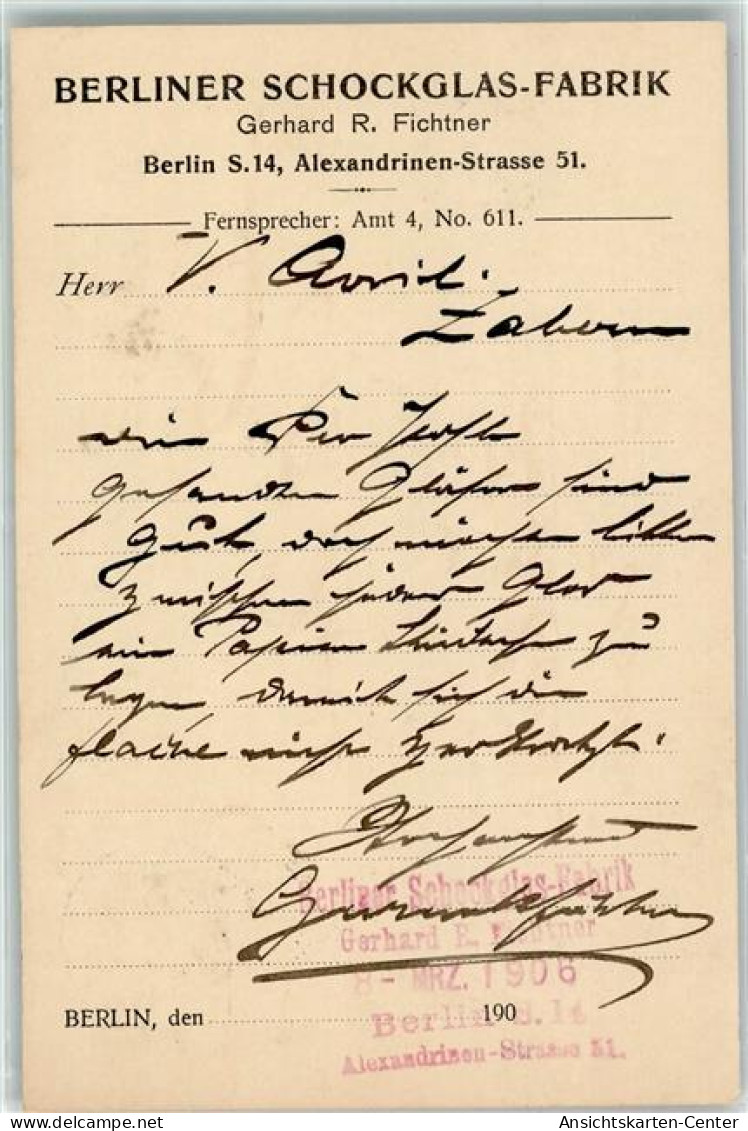 BERLINER SCHOCKGLAS-FABRIK
Gerhard R. Fichtner
Berlin S.14, Alexandrinen-Strasse 51.
Fernsprecher: Amt 4, No. 611.
Herr V. Avril.
Zabern
die Per
gesandten Gläser sind
gut, doch möchte bitten
zwischen jedes Glas
ein Papier zu
legen damit sich die
fläche nicht zerkratzt.
Hochachtend
Gerhard Fichtner
Berliner Schockglas-Fabrik
Gerhard R. Fichtner
8- MRZ. 1906
Berlin S. 14
Alexandrinen-Strasse 51.
BERLIN, den 190
Ansichtskarten-Center